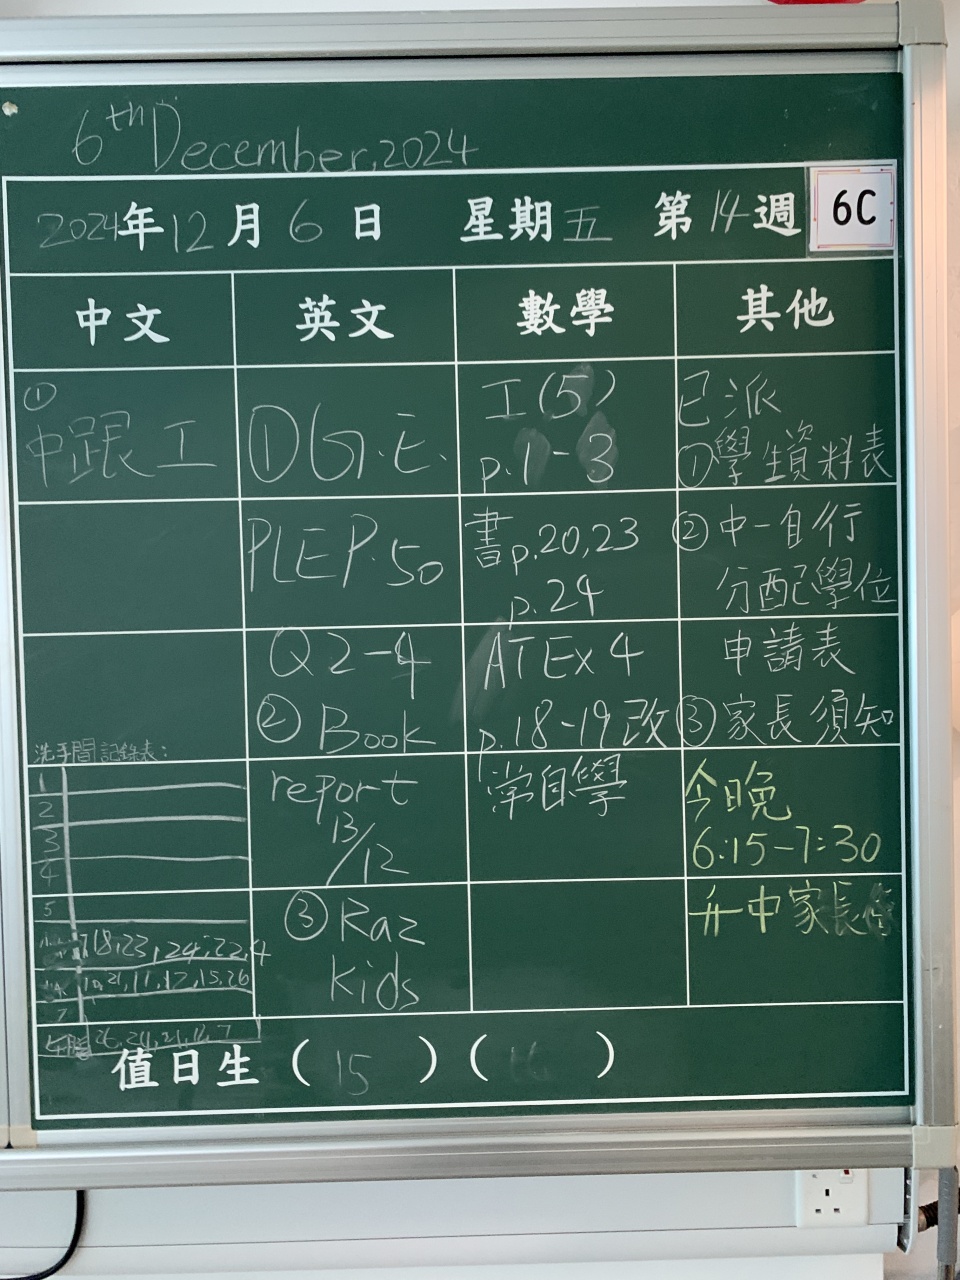 6th December, 2024
2024年12月6日 星期五 第14週 6C
中文 英文 數學 其他
①
中跟工
洗手間記錄表：
1
2
3
4
5
7
①G.E.
PLEP.50
Q2-4
②Book
report
13/12
③Raz
kids
工(5)
p.1-3
書p.20,23
p.24
ATEx4
p.18-19改
常自學
已派
①學生資料表
②中一自行
分配學位
申請表
③家長須知
今晚
6:15-7:30
升中家長
值日生（15）（16）